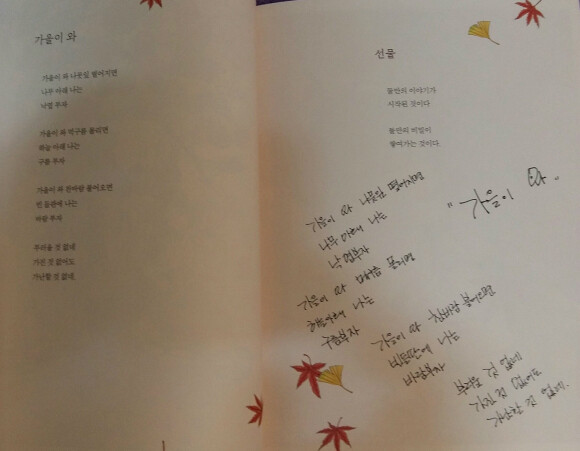 가을이 와
가을이 와 나뭇잎 떨어지면
나무 아래 나는
낙엽 부자
가을이 와 먹구름 몰리면
하늘 아래 나는
구름 부자
가을이 와 찬바람 불어오면
빈 들판에 나는
바람 부자
부러울 것 없네
가진 것 없어도
가난할 것 없네.
선물
둘만의 이야기가
시작된 것이다
둘만의 비밀이
쌓여가는 것이다
"가을이 와"
가을이 와 나뭇잎 떨어지면
나무 아래 나는
낙엽부자
가을이 와 먹구름 몰리면
하늘아래 나는
구름부자
가을이 와 찬바람 불어오면
빈들판에 나는
바람부자
부러울 것 없네
가진 것 없어도
가난할 것 없네.